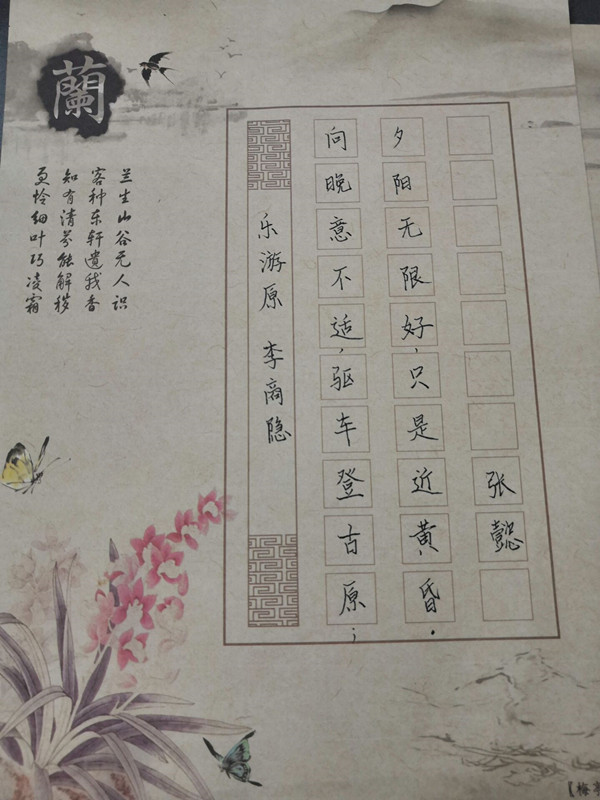 蘭
兰生山谷无人识
客种东轩遗我香
知有清芬能解秽
更怜细叶巧凌霜
乐游原 李商隐
向晚意不适，驱车登古原；
夕阳无限好，只是近黄昏.
张懿
【梅亭